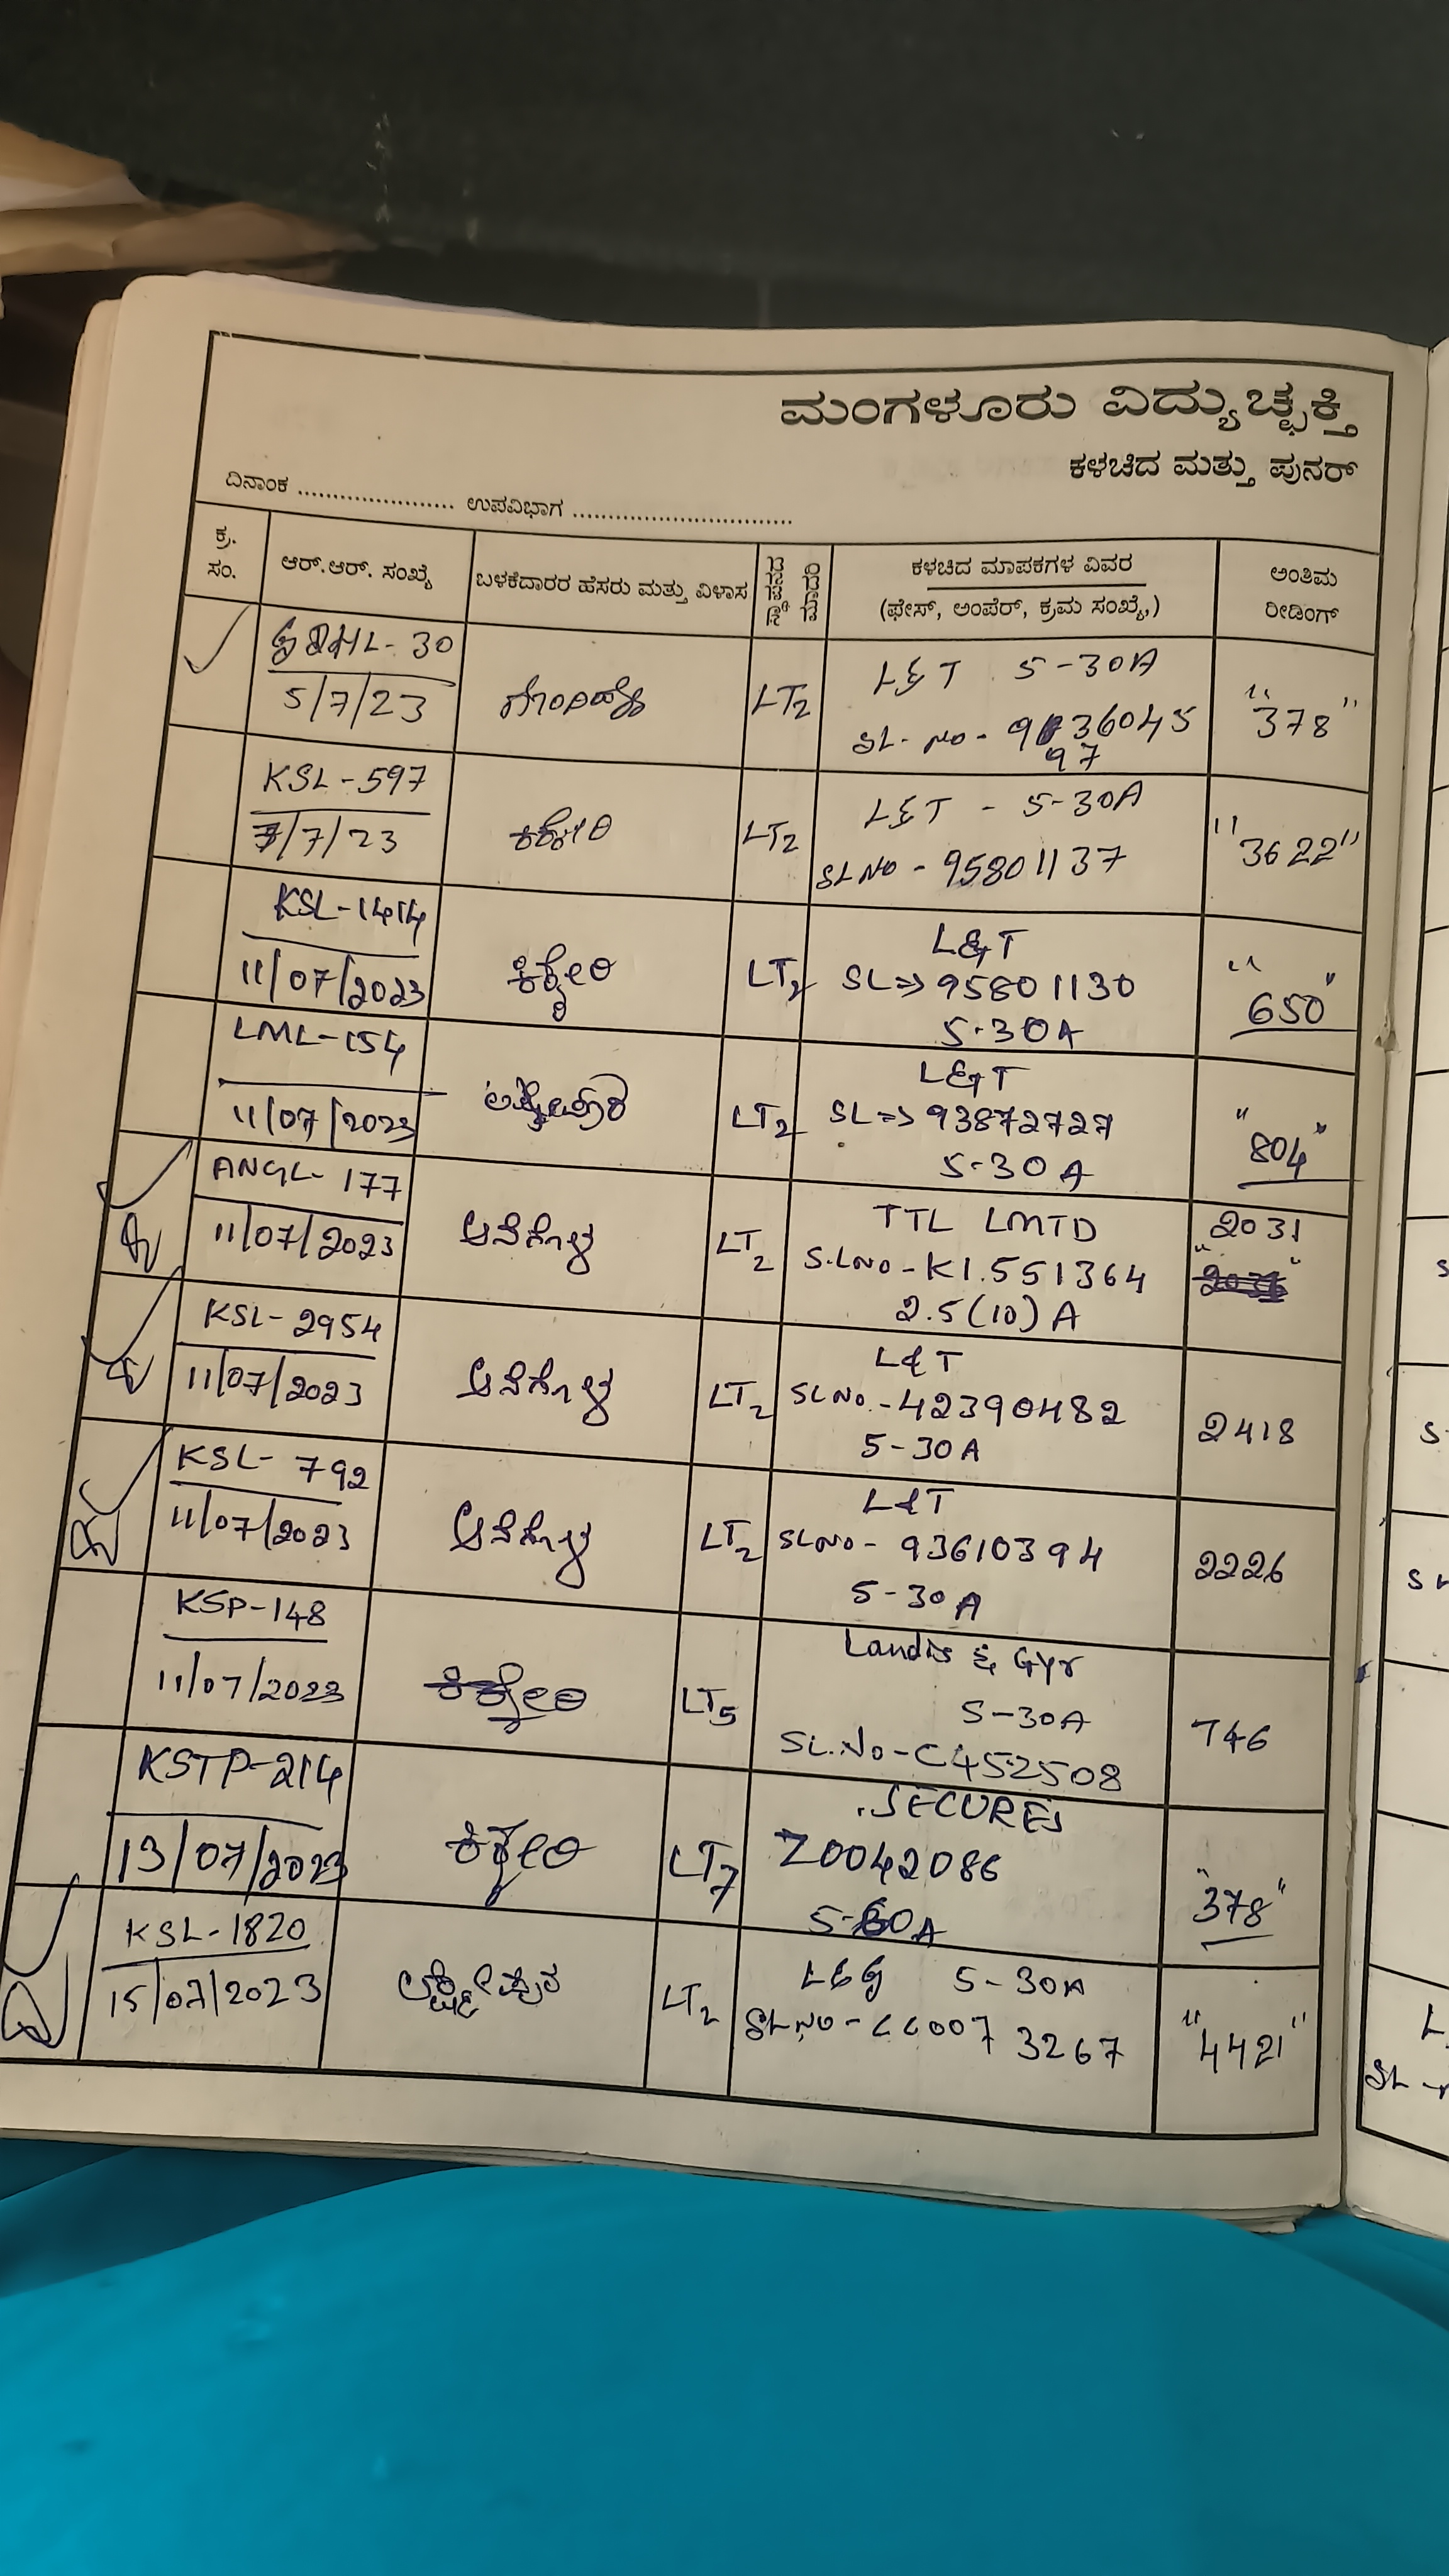 ಮಂಗಳೂರು ವಿದ್ಯುಚ್ಛಕ್ತಿ
ಕಳಚಿದ ಮತ್ತು ಪುನರ್
ದಿನಾಂಕ ...................... ಉಪವಿಭಾಗ ...............................
ಕ್ರ. ಸಂ.
ಆರ್.ಆರ್. ಸಂಖ್ಯೆ
ಬಳಕೆದಾರರ ಹೆಸರು ಮತ್ತು ವಿಳಾಸ
ಸ್ಥಾಪನದ ಮಾದರಿ
ಕಳಚಿದ ಮಾಪಕಗಳ ವಿವರ
(ಫೇಸ್, ಅಂಪೆರ್, ಕ್ರಮ ಸಂಖ್ಯೆ,)
ಅಂತಿಮ
ರೀಡಿಂಗ್
HL-30
5/7/23
LT2
L&T 5-30A
SL-NO-
97
"378"
KSL-597
7/7/23
ಕಿಕ್ಕೇರಿ
LT2
L&T - 5-30A
SLNO - 95801137
"3622"
KSL-1414
11/07/2023
ಕಿಕ್ಕೇರಿ
LT2
L&T
SL=>95801130
5-30A
"650"
LML-154
11/07/2023
LT2
L&T
SL=>93872727
5-30A
"804"
ANGL-177
11/07/2023
ಆನೆಗೊಳ
LT2
TTL LMTD
S.LNO-K1.551364
2.5(10)A
2031
KSL-2954
11/07/2023
ಆನೆಗೊಳ
LT2
L&T
SLNo.-42390482
5-30A
2418
KSL-792
11/07/2023
ಆನೆಗೊಳ
LT2
L&T
SLNO-93610394
5-30A
2226
KSP-148
11/07/2023
ಕಿಕ್ಕೇರಿ
LT5
Landis & Gyr
5-30A
SL.No-C452508
746
KSTP-214
13/07/2023
ಕಿಕ್ಕೇರಿ
LT7
SECURES
Z0042086
5-60A
"378"
KSL-1820
15/07/2023
ಲಕ್ಷ್ಮೀಪುರ
LT2
L&G 5-30A
SLNO-CC007 3267
"4421"